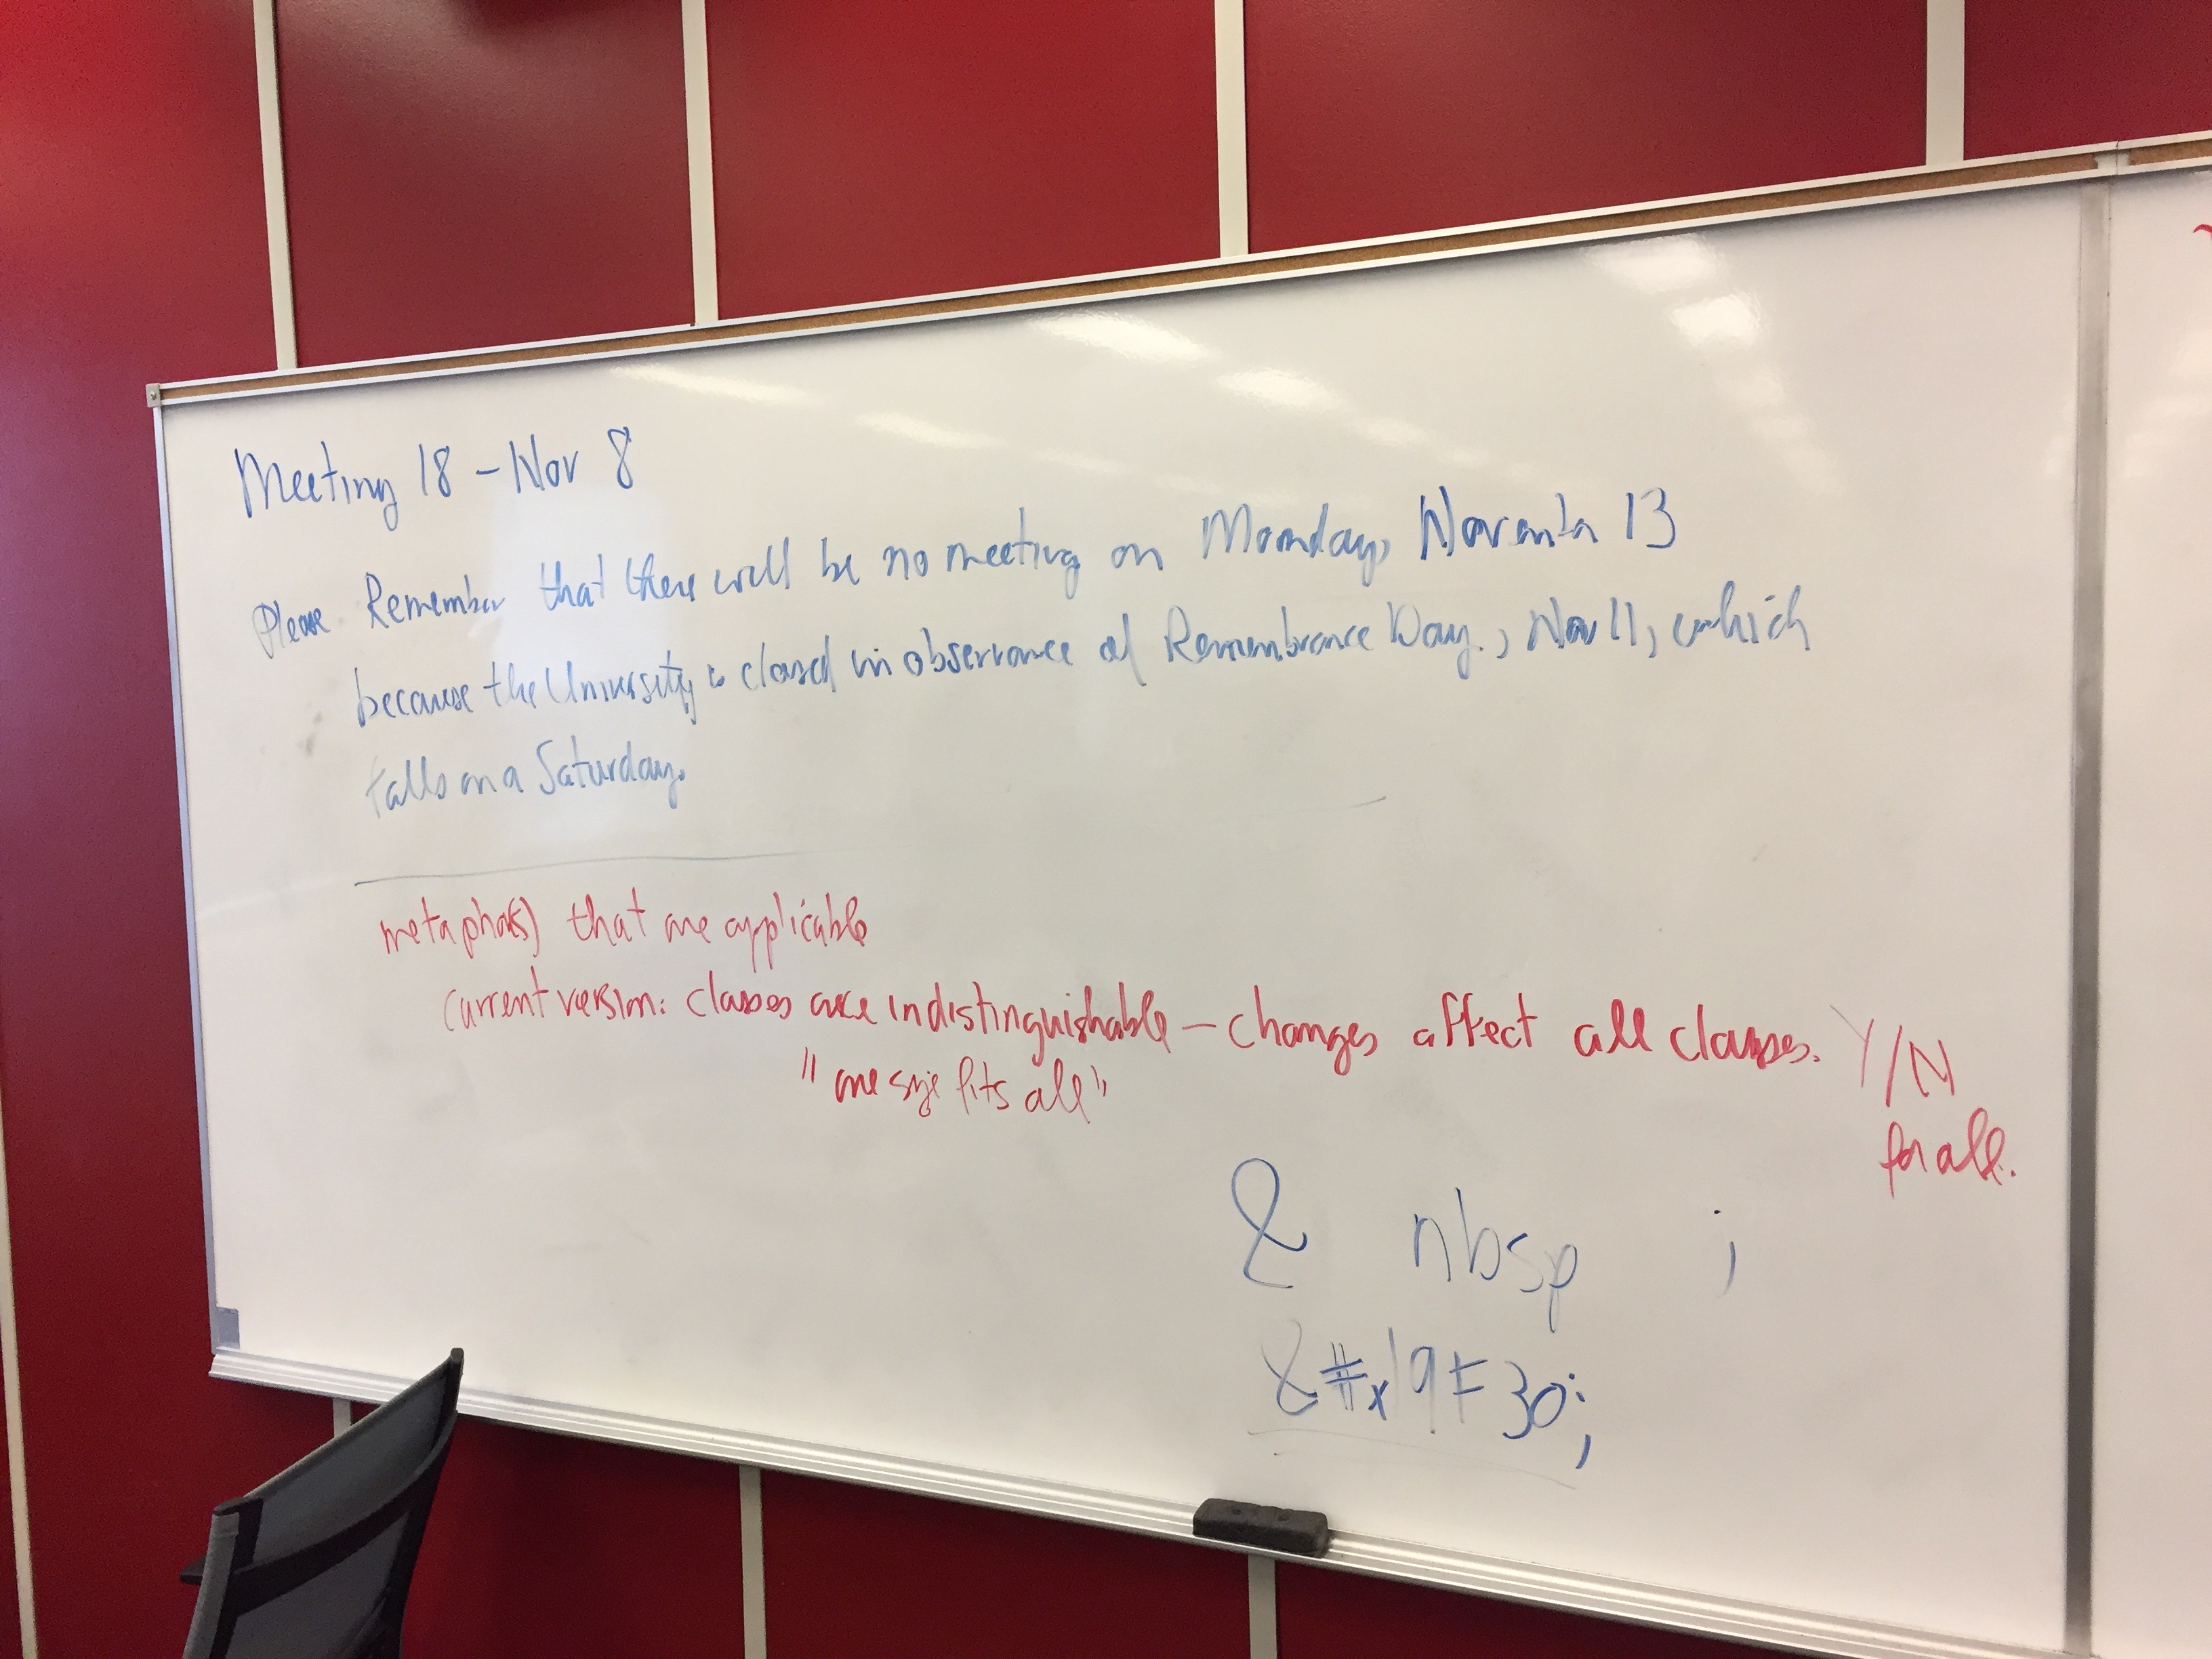 Meeting 18 - Nov 8
Please Remember that there will be no meeting on Monday, November 13
because the University is closed in observance of Remembrance Day., Nov 11, which
falls on a Saturday.
metaphor(s) that are applicable
current version: classes are indistinguishable - changes affect all classes. Y/N
"one size fits all"
for all.
& nbsp ;
&#x19F30;